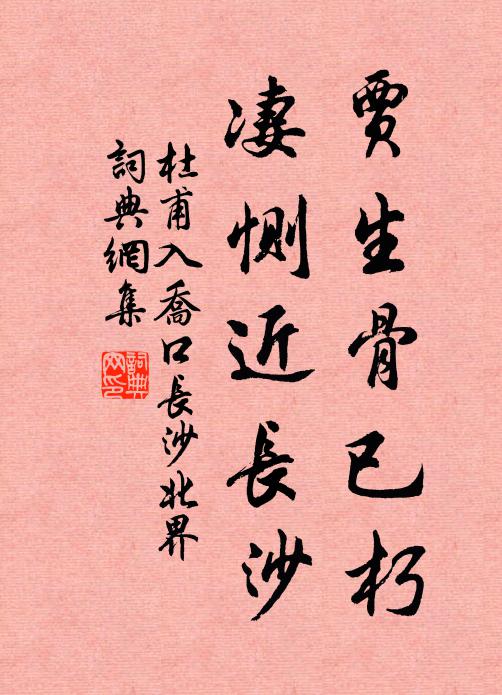 賈生骨已朽
凄惻近長沙
杜甫入喬口長沙北界
詞典網集
詞典網印